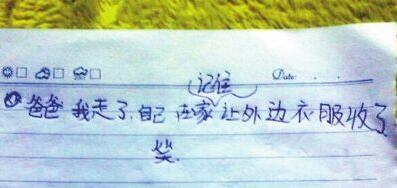 Date:
记住
爸爸 我走了.自己在家让外边衣服收了
笑.